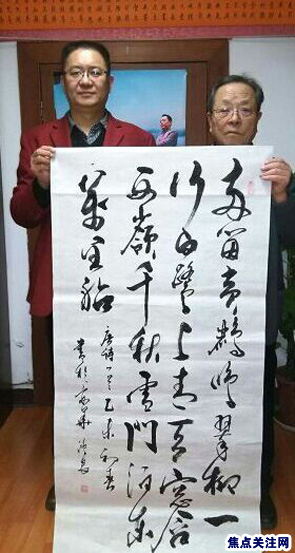 两个黄鹂鸣翠柳一
行白鷺上青天窓含
西嶺千秋雪門泊东
吴萬里船
唐诗一首乙未初春
焦点关注网